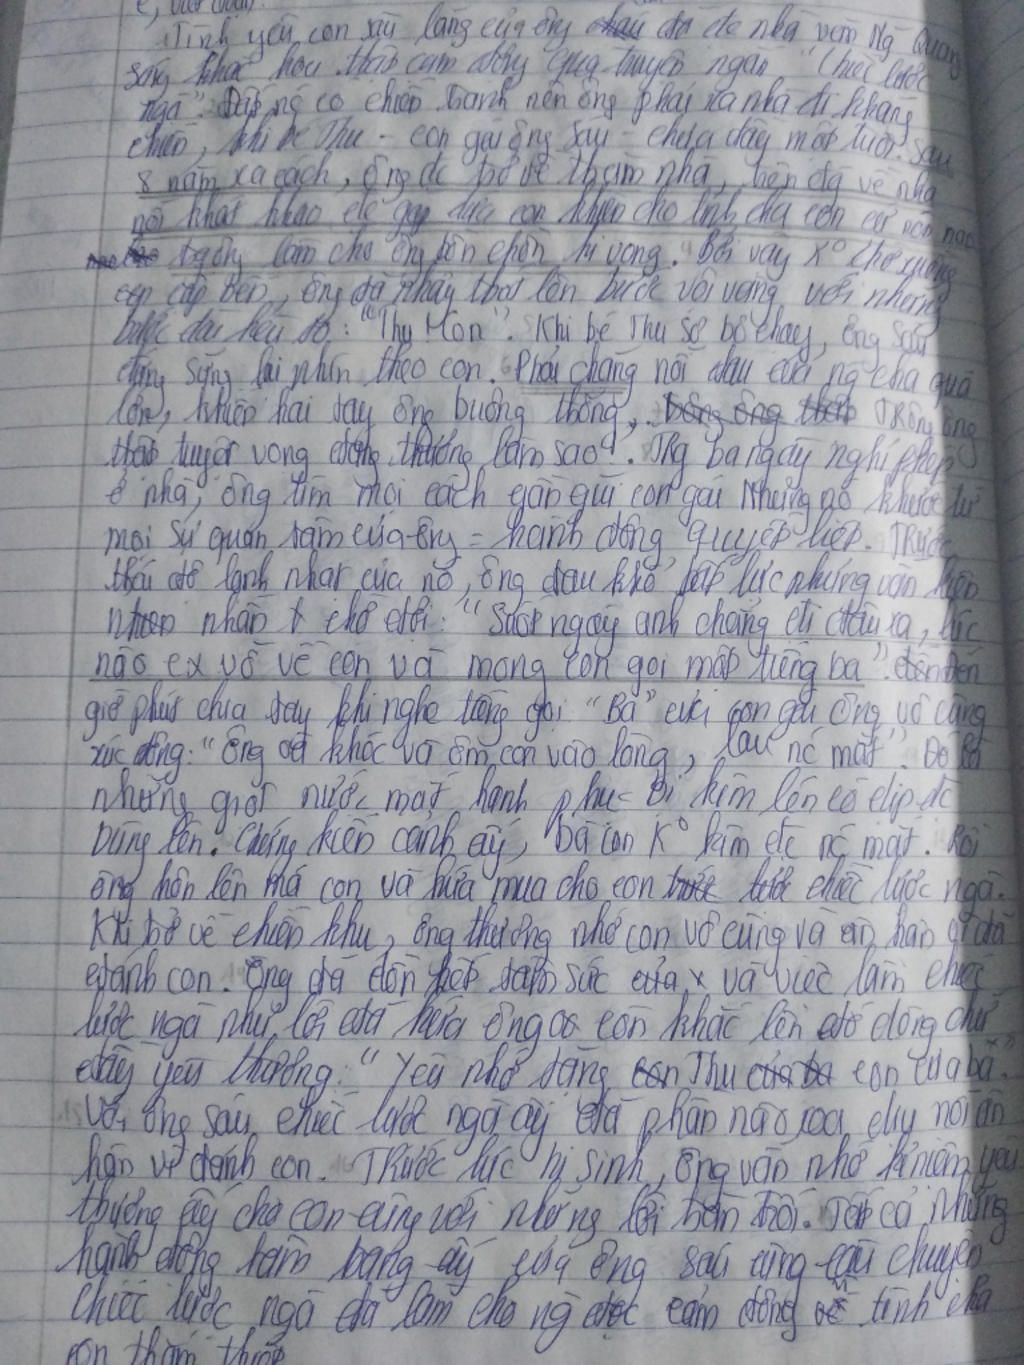 Tình yêu con sâu lặng của ông đã đc nhà văn Ng Quang
Sáng khắc hoạ thật cảm động qua truyện ngắn "Chiếc lược
ngà". Đất nc có chiến tranh nên ông phải xa nhà đi kháng
chiến, khi bé Thu - con gái ông Sáu - chưa đầy một tuổi. Sau
8 năm xa cách, ông đc trở về thăm nhà, trên đg về nhà
nỗi khát khao đc gặp đứa con khiến cho tình cha con cứ nôn nao
trg ông làm cho ông bồn chồn hi vọng. Bởi vậy K° chờ xuồng
cập bến, ông đã nhảy thót lên bước vội vàng với những
bước dài kêu to: "Thu! Con". Khi bé Thu sợ bỏ chạy, ông Sáu
đứng sững lại nhìn theo con. Phải chăng nỗi đau của ng cha quá
lớn, khiến hai tay ông buông thõng, Trông ông
thật tuyệt vọng đáng thương làm sao!. Trg ba ngày nghỉ phép
ở nhà, ông tìm mọi cách gần gũi con gái Nhưng nó khước từ
mọi sự quan tâm của ông = hành động quyết liệt. Trước
thái độ lạnh nhạt của nó, ông đau khổ bất lực nhưng vẫn kiên
nhẫn chờ đợi: "Suốt ngày anh chẳng đi đâu xa, lúc
nào cx vỗ về con và mong con gọi một tiếng ba". đến
giờ phút chia tay khi nghe tiếng gọi "Ba" của con gái ông vô cùng
xúc động: "Ông đã khóc và ôm con vào lòng, lau nc mắt". Đó là
những giọt nước mắt hạnh phúc bị kìm nén có dịp đc
bùng lên. Chứng kiến cảnh ấy, bà con K° kìm đc nc mắt. Rồi
ông hôn lên má con và hứa mua cho con chiếc lược ngà.
Khi trở về chiến khu, ông thương nhớ con vô cùng và ân hận vì đã
đánh con. Ông đã dồn hết tâm sức của x và việc làm chiếc
lược ngà như lời đã hứa ông còn khắc lên đó dòng chữ
đầy yêu thương: "Yêu nhớ tặng Thu con của ba".
Với ông Sáu chiếc lược ngà ấy đã phần nào xoa dịu nỗi ân
hận vì đánh con. Trước lúc hi sinh, ông vẫn nhớ kỉ niệm yêu
thương ấy cho con cùng với những lời trăn trối. Tất cả những
hành động tâm trạng ấy của ông Sáu cùng câu chuyện
chiếc lược ngà đã làm cho ng đọc cảm động về tình cha
con thắm thiết